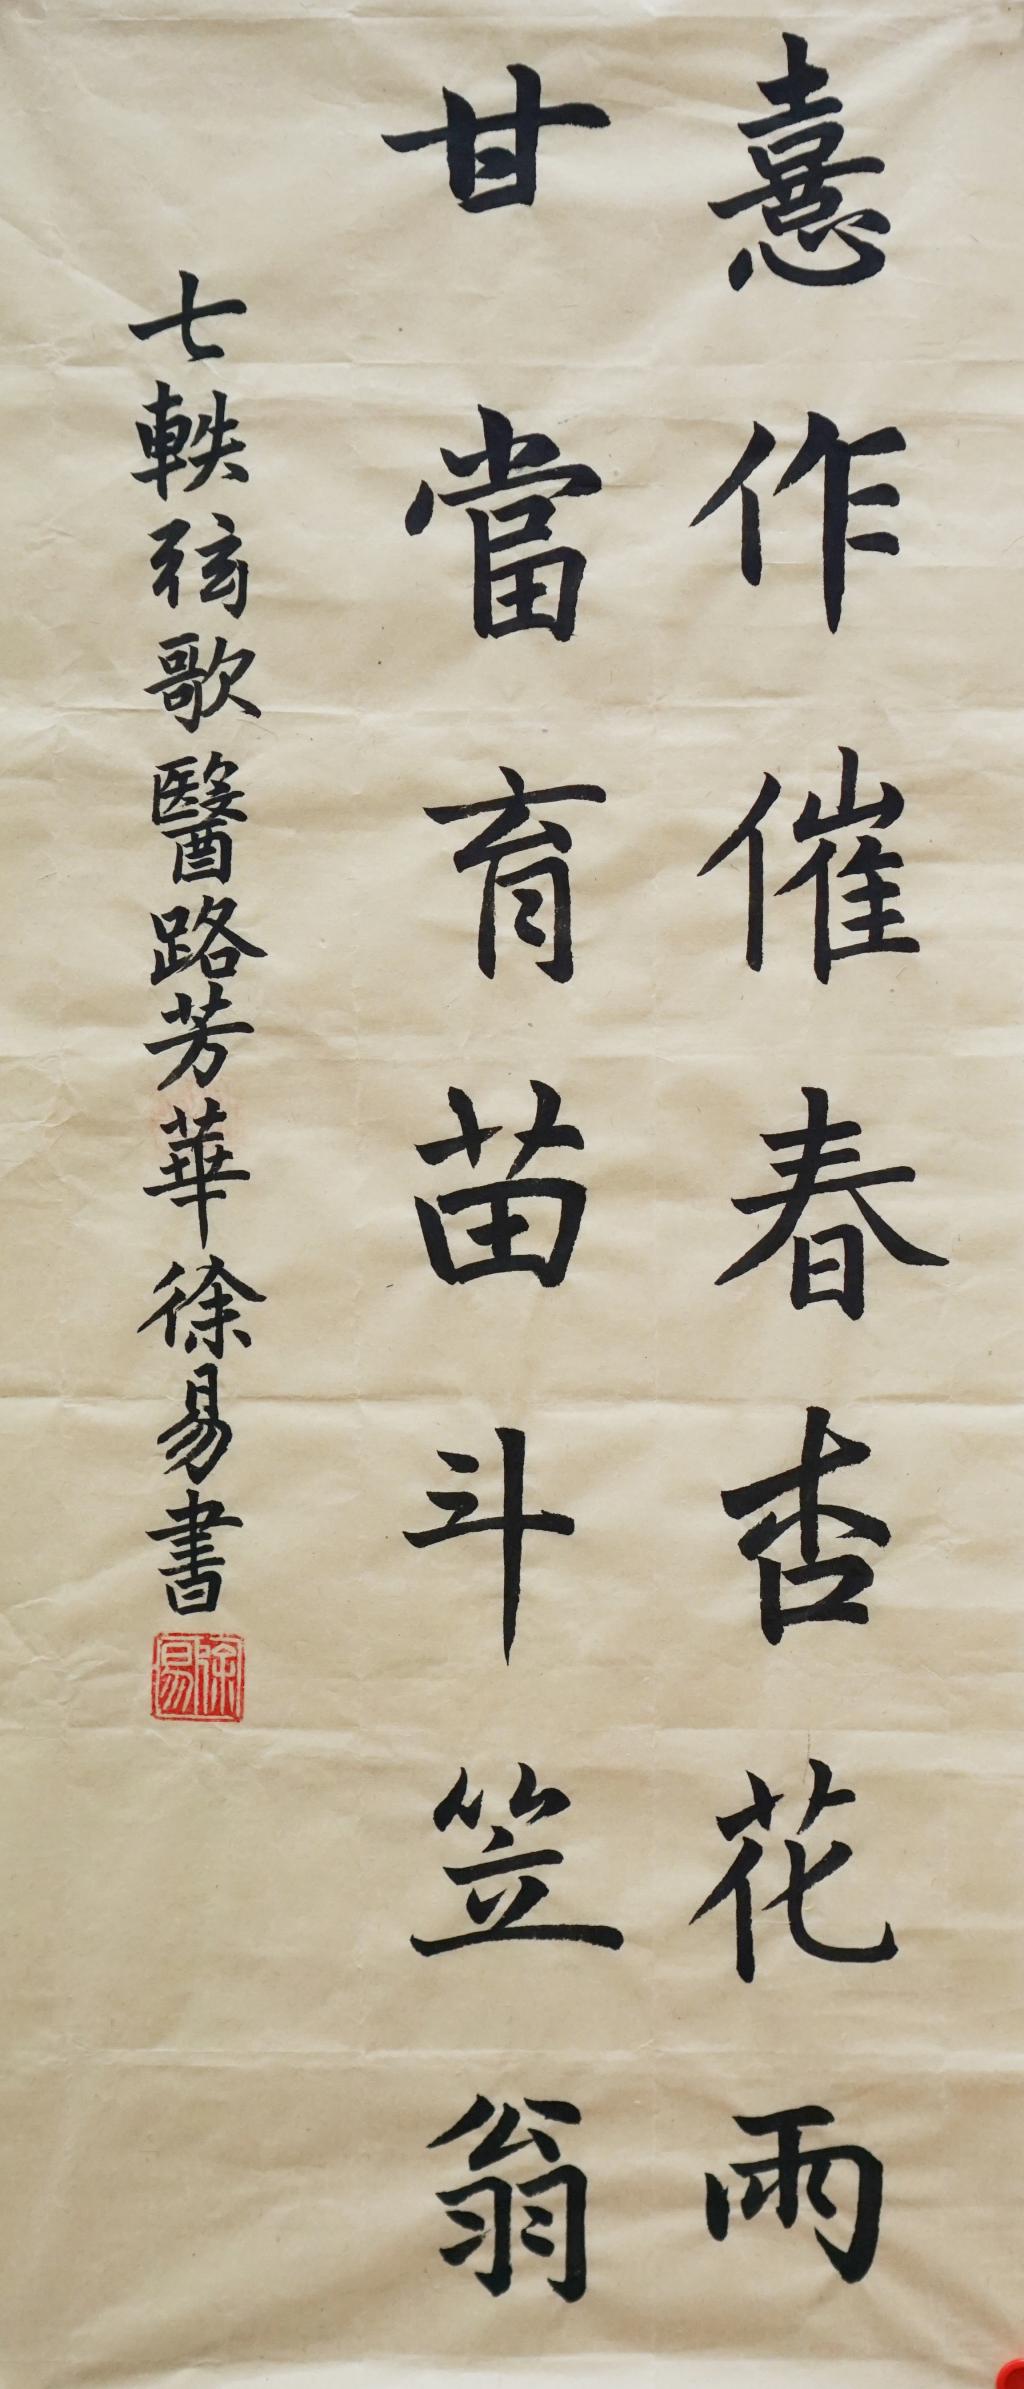 憙作催春杏花雨
甘當育苗斗笠翁
七軼弦歌醫路芳華徐易書
徐易